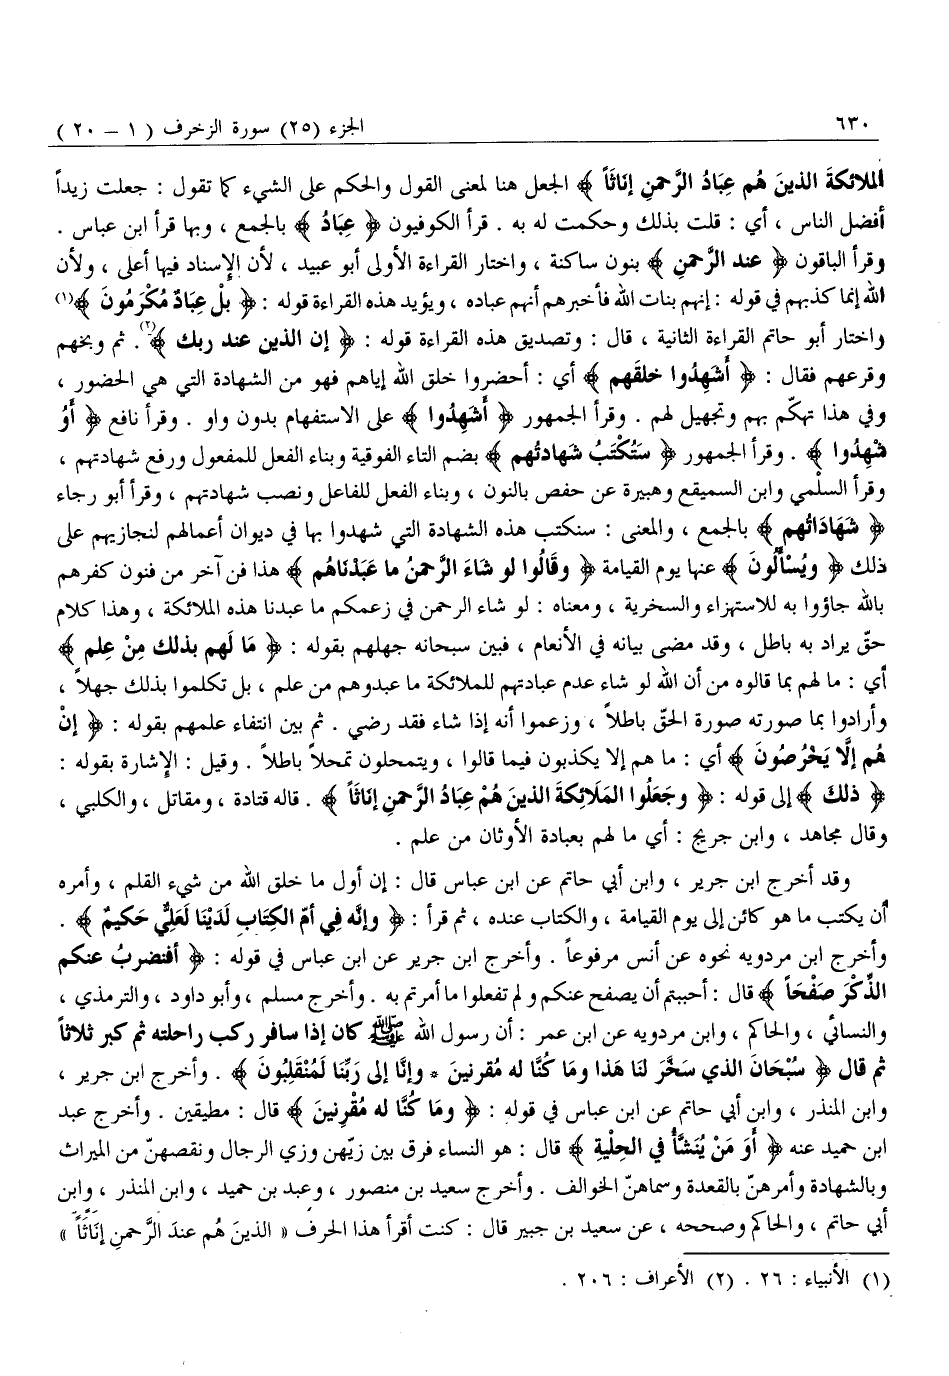 ٦٣٠
الجزء (٢٥) سورة الزخرف ( ١ – ٢٠ )
الملائكةَ الذينَ هُم عِبَادُ الرَّحمنِ إنَاثَاً ﴾ الجعل هنا لمعنى القول والحكم على الشيء كما تقول : جعلت زيداً
أفضل الناس ، أي : قلت بذلك وحكمت له به . قرأ الكوفيون ﴿ عِبَادُ ﴾ بالجمع ، وبها قرأ ابن عباس .
وقرأ الباقون ﴿ عند الرَّحمنِ ﴾ بنون ساكنة ، واختار القراءة الأولى أبو عبيد ، لأن الإسناد فيها أعلى ، ولأن
الله إنما كذبهم في قوله : إنهم بنات الله فأخبرهم أنهم عباده ، ويؤيد هذه القراءة قوله : ﴿ بلْ عِبَادٌ مُكْرَمُونَ ﴾(١)
واختار أبو حاتم القراءة الثانية ، قال : وتصديق هذه القراءة قوله : ﴿ إن الذين عند ربك ﴾(٢). ثم وبخهم
وقرعهم فقال : ﴿ أَشَهِدُوا خلقَهم ﴾ أي : أحضروا خلق الله إياهم فهو من الشهادة التي هي الحضور ،
وفي هذا تهكّم بهم وتجهيل لهم . وقرأ الجمهور ﴿ أَشَهِدُوا ﴾ على الاستفهام بدون واو . وقرأ نافع ﴿ أَوُ
شْهِدُوا ﴾ . وقرأ الجمهور ﴿ سَتُكْتَبُ شَهَادتُهم ﴾ بضم التاء الفوقية وبناء الفعل للمفعول ورفع شهادتهم ،
وقرأ السلْمي وابن السميقع وهبيرة عن حفص بالنون ، وبناء الفعل للفاعل ونصب شهادتهم ، وقرأ أبو رجاء
﴿ شَهَادَاتُهم ﴾ بالجمع ، والمعنى : سنكتب هذه الشهادة التي شهدوا بها في ديوان أعمالهم لنجازيهم على
ذلك ﴿ ويُسْأَلُونَ ﴾ عنها يوم القيامة ﴿ وقَالُوا لو شاءَ الرَّحمنُ ما عَبَدْنَاهُم ﴾ هذا فن آخر من فنون كفرهم
بالله جاؤوا به للاستهزاء والسخرية ، ومعناه : لو شاء الرحمن في زعمكم ما عبدنا هذه الملائكة ، وهذا كلام
حقّ يراد به باطل ، وقد مضى بيانه في الأنعام ، فبين سبحانه جهلهم بقوله : ﴿ مَا لَهم بذلك مِنْ عِلم ﴾
أي : ما لهم بما قالوه من أن الله لو شاء عدم عبادتهم للملائكة ما عبدوهم من علم ، بل تكلموا بذلك جهلاً ،
وأرادوا بما صورته صورة الحقّ باطلاً ، وزعموا أنه إذا شاء فقد رضي . ثم بين انتفاء علمهم بقوله : ﴿ إنْ
هُم إلَّا يَخْرُصُونَ ﴾ أي : ما هم إلا يكذبون فيما قالوا ، ويتمحلون تمحلاً باطلاً . وقيل : الإشارة بقوله :
﴿ ذلكَ ﴾ إلى قوله : ﴿ وجَعَلُوا المَلَائِكَةَ الذينَ هُمْ عِبَادُ الرَّحمنِ إنَاثَاً ﴾ . قاله قتادة ، ومقاتل ، والكلبي ،
وقال مجاهد ، وابن جريج : أي ما لهم بعبادة الأوثان من علم .
وقد أخرج ابن جرير ، وابن أبي حاتم عن ابن عباس قال : إن أول ما خلق الله من شيء القلم ، وأمره
أن يكتب ما هو كائن إلى يوم القيامة ، والكتاب عنده ، ثم قرأ : ﴿ وإنَّه فِي أمّ الكِتَابِ لَدَيْنَا لَعَلِيٌّ حَكيمٌ ﴾ .
وأخرج ابن مردويه نحوه عن أنس مرفوعاً . وأخرج ابن جرير عن ابن عباس في قوله : ﴿ أفنضربُ عنكم
الذِّكْرَ صَفْحَاً ﴾ قال : أحببتم أن يصفح عنكم و لم تفعلوا ما أمرتم به . وأخرج مسلم ، وأبو داود ، والترمذي ،
والنسائي ، والحاكم ، وابن مردويه عن ابن عمر : أن رسول الله ﷺ كان إذا سافر ركب راحلته ثم كبر ثلاثاً
ثم قال ﴿ سُبْحَانَ الذي سَخَّرَ لنَا هَذا ومَا كُنَّا له مُقرنينَ * وإنَّا إلى رَبِّنَا لَمُنْقَلِبُونَ ﴾ . وأخرج ابن جرير ،
وابن المنذر ، وابن أبي حاتم عن ابن عباس في قوله : ﴿ ومَا كُنَّا له مُقْرِنينَ ﴾ قال : مطيقين . وأخرج عبد
ابن حميد عنه ﴿ أَوَ مَنْ يُنَشَّأُ في الحِلْيةِ ﴾ قال : هو النساء فرق بين زيّهن وزي الرجال ونقصهنّ من الميراث
وبالشهادة وأمرهنّ بالقعدة وسماهنّ الخوالف . وأخرج سعيد بن منصور ، وعبد بن حميد ، وابن المنذر ، وابن
أبي حاتم ، والحاكم وصححه ، عن سعيد بن جبير قال : كنت أقرأ هذا الحرف « الذينَ هُم عندَ الرَّحمنِ إنَاثَاً »
(١) الأنبياء : ٢٦ . (٢) الأعراف : ٢٠٦ .